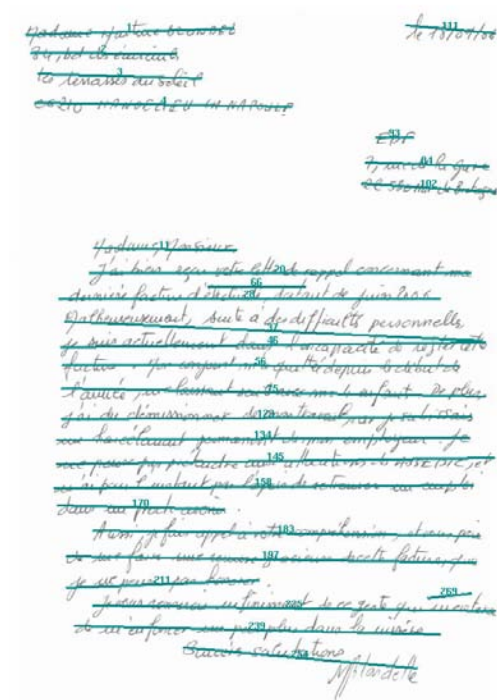 Madame Martine
34, bd
les terrasses du soleil
06210 MANDELIEU LA NAPOULE
le 18/07/06
EDF
7, rue de la gare
Madame, Monsieur
J'ai bien reçu votre lettre de rappel concernant ma
dernière facture d'électricité, datant de juin 2006
Malheureusement, suite à des difficultés personnelles,
je suis actuellement dans l'incapacité de régler cette
facture. Mon conjoint m'a quittée depuis le début de
l'année, me laissant enfant. De plus,
j'ai dû démissionner de mon travail, car je subissais
un harcèlement permanent de mon employeur. Je
ne peux pas prétendre aux allocations de ASSEDIC, et
n'ai pour l'instant pas espoir de retrouver un emploi
dans un proche avenir.
Aussi je fais appel à votre compréhension, et vous prie
de me faire une remise gracieuse de cette facture, que
je ne peux pas honorer.
Je vous remercie infiniment de ce geste qui m'évitera
de m'enfoncer un peu plus dans la misère.
Sincères salutations